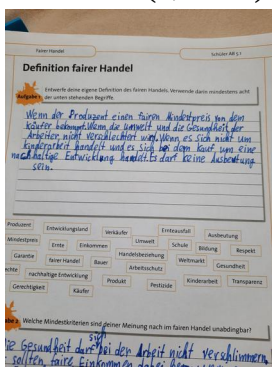 Fairer Handel
Schüler AB § 1
Definition fairer Handel
Aufgabe 1
Entwerfe deine eigene Definition des fairen Handels. Verwende dazu mindestens acht
der unten stehenden Begriffe
Wenn der Produzent einen fairen Mindestpreis von dem
käufer bekommt. Wenn die umwelt und die Gesundheit der
Arbeiter, nicht verschlechtert wird. Wenn es sich nicht um
kinderarbeit handelt und es sich bei dem kauf, um eine
nachhaltige Entwicklung handelt. Es darf keine Ausbeutung
sein.
Produzent
Entwicklungsland
Verkäufer
Ernteausfall
Ausbeutung
Mindestpreis
Ernte
Einkommen
Umwelt
Schule
Bildung
Respekt
Garantie
fairer Handel
Bauer
Handelsbeziehung
Weltmarkt
Gesundheit
nachhaltige Entwicklung
Arbeitsschutz
Kinderarbeit
Transparenz
Gerechtigkeit
Käufer
Produkt
Pestizide
Welche Mindestkriterien sind deiner Meinung nach im fairen Handel unabdingbar?
Gesundheit darf sich bei der Arbeit nicht verschlimmern.
sollten faire Einkommen